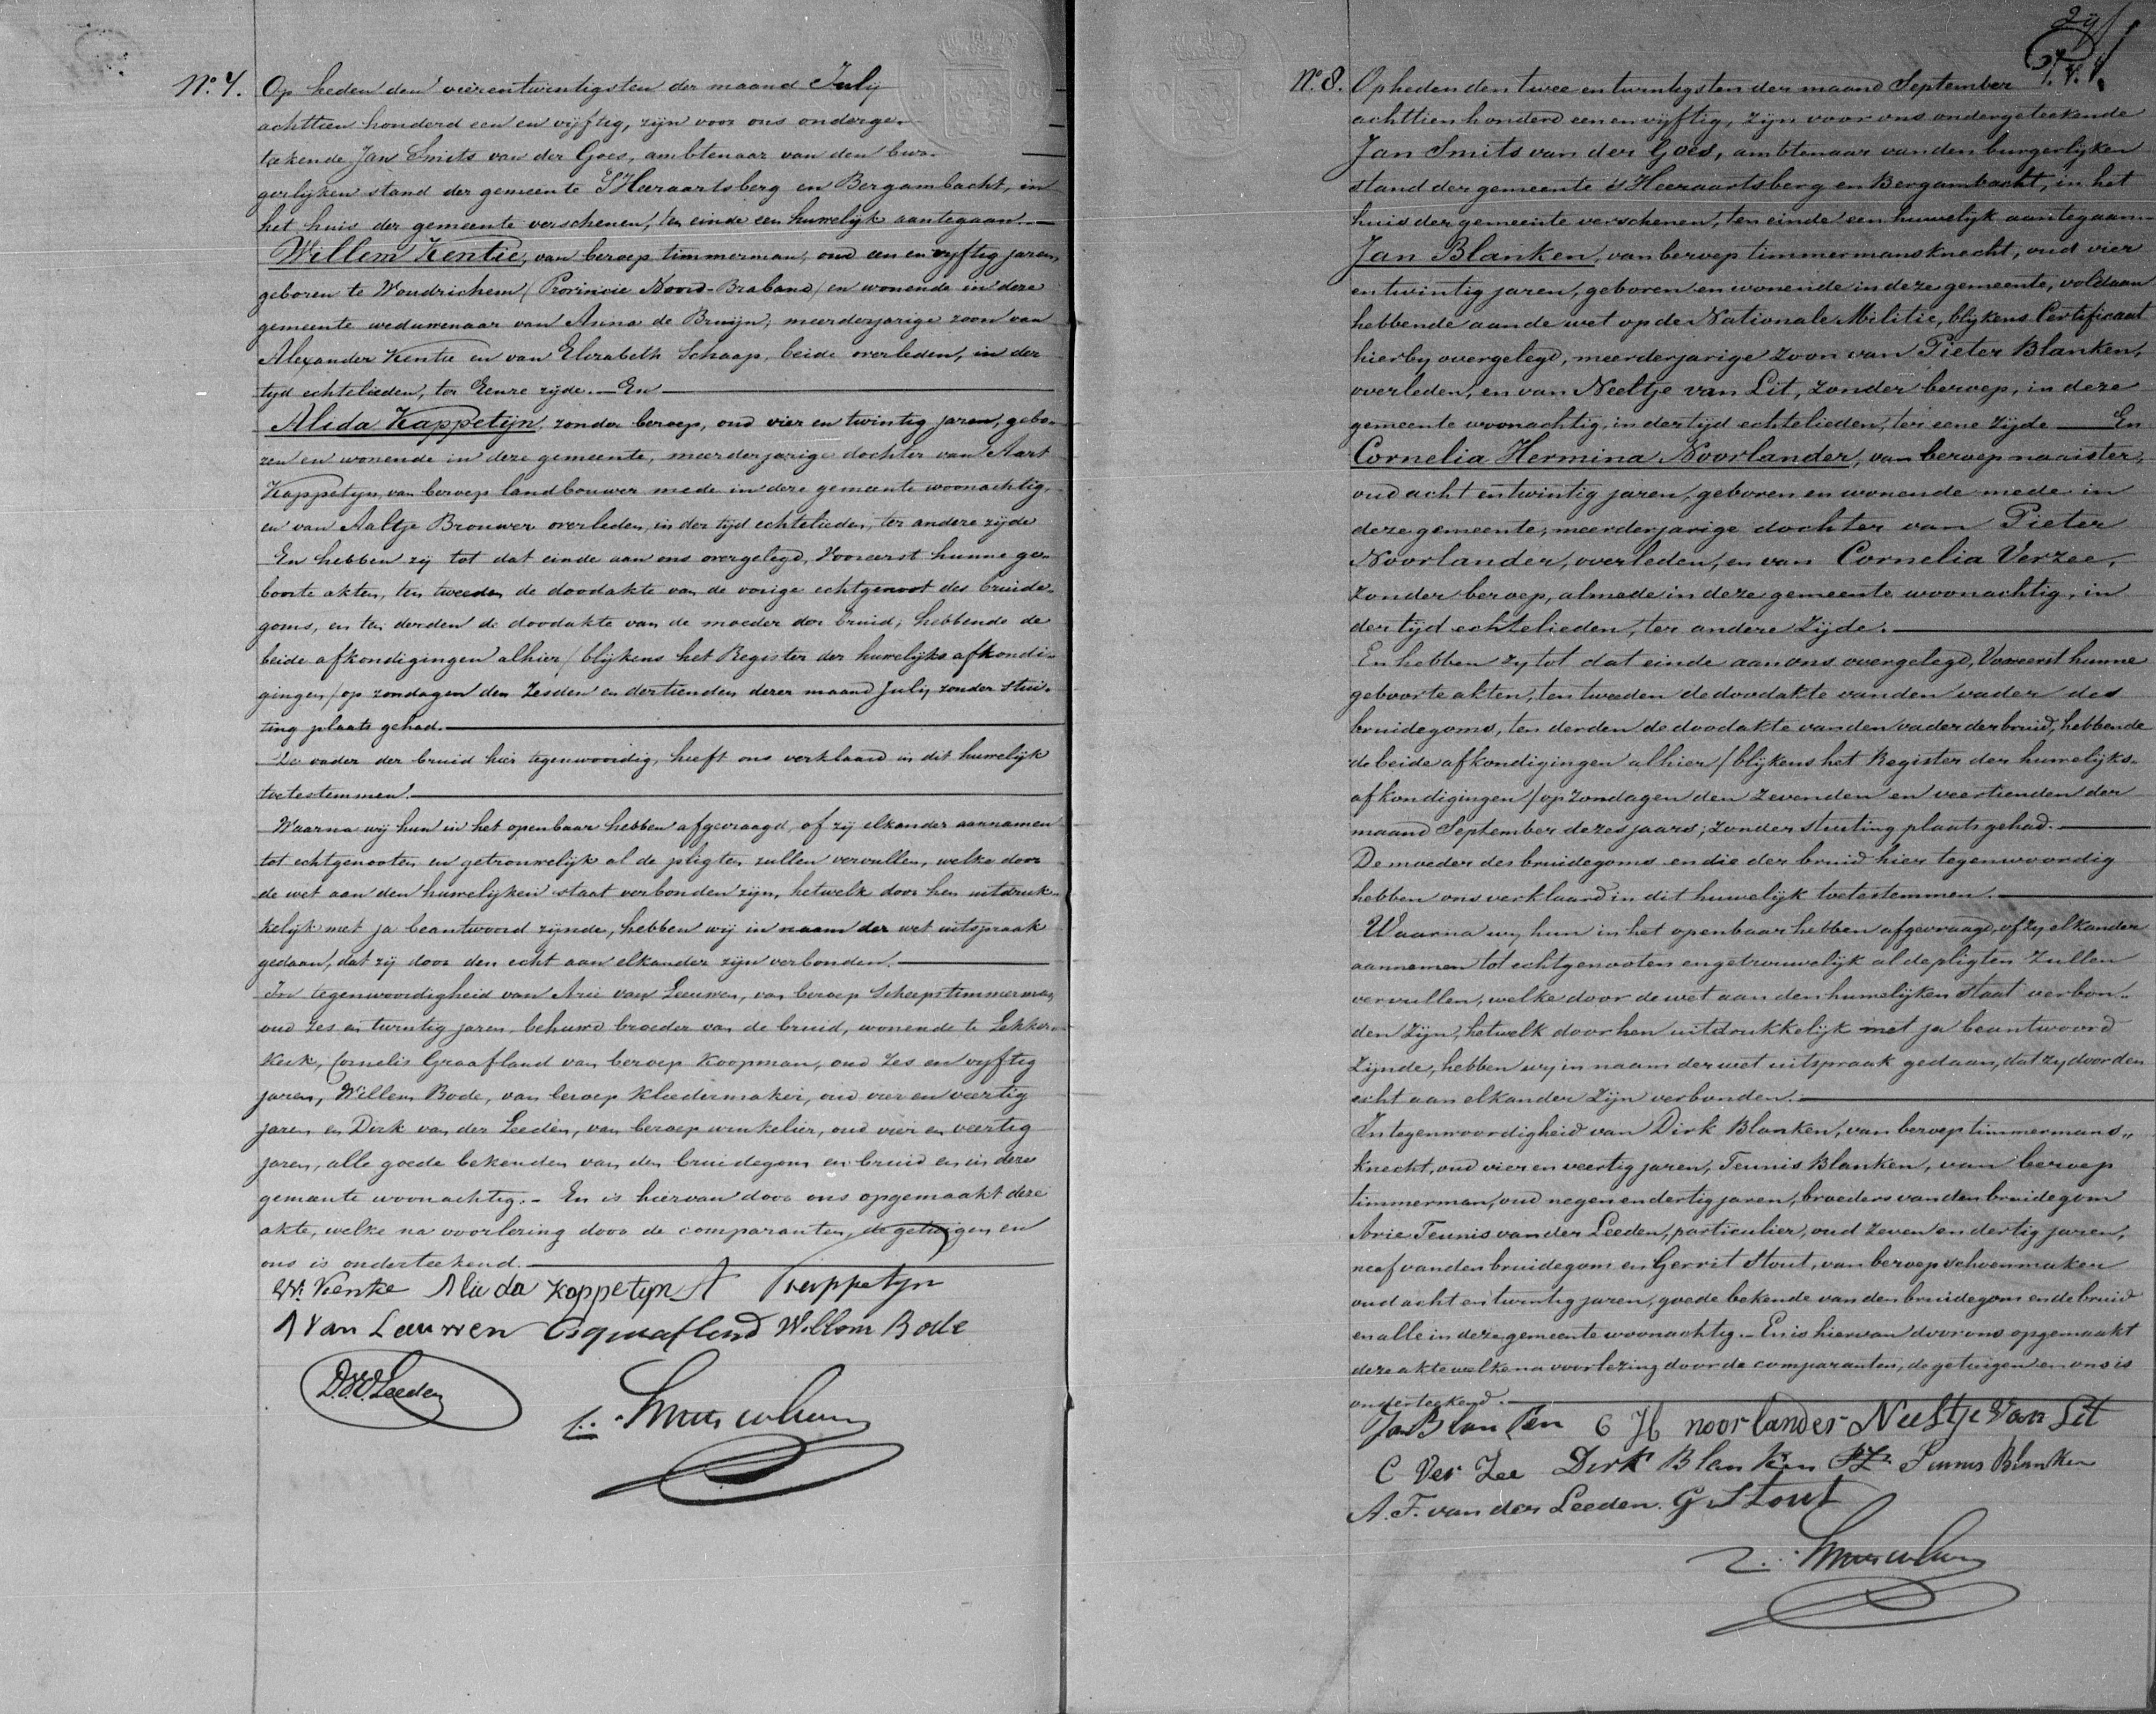 No. 7. Op heden den vierentwintigsten der maand July
achttien honderd een en vijftig, zijn voor ons onderge-
teekende Jan Smits van der Goes, ambtenaar van den bur-
gerlijken stand der gemeente S'Heeraartsberg en Bergambacht, in
het huis der gemeente verschenen, ten einde een huwelijk aantegaan.
Willem Kentie, van beroep timmerman, oud een en vyftig jaren,
geboren te Woudrichem (Provincie Noord-Braband) en wonende in deze
gemeente weduwenaar van Anna de Bruijn, meerderjarige zoon van
Alexander Kentie en van Elizabeth Schaap, beide overleden, in der
tyd echtelieden, ter Eenre zyde. En
Alida Kappetijn, zonder beroep, oud vier en twintig jaren, gebo-
ren en wonende in deze gemeente, meerderjarige dochter van Aart
Kappetyn, van beroep landbouwer mede in deze gemeente woonachtig,
en van Aaltje Brouwer overleden, in der tijd echtelieden, ter andere zijde
En hebben zij tot dat einde aan ons overgelegd, Vooreerst hunne ge-
boorte akten, ten tweeden de doodakte van de vorige echtgenoot des bruide-
goms, en ten derden de doodakte van de moeder der bruid, hebbende de
beide afkondigingen alhier (blijkens het Register der huwelijks afkondi-
gingen) op zondagen den Zesden en dertienden dezer maand July zonder stui-
ting plaats gehad.
De vader der bruid hier tegenwoordig, heeft ons verklaard in dit huwelijk
toetestemmen.
Waarna wij hun in het openbaar hebben afgevraagd, of zij elkander aannamen
tot echtgenooten en getrouwelijk al de pligten zullen vervullen, welke door
de wet aan den huwelijken staat verbonden zijn, hetwelk door hen uitdruk-
kelijk met ja beantwoord zijnde, hebben wij in naam der wet uitspraak
gedaan, dat zij door den echt aan elkander zijn verbonden.
In tegenwoordigheid van Arie van Leeuwen, van beroep Scheepstimmerman,
oud zes en twintig jaren, behuwd broeder van de bruid, wonende te Lekker-
kerk, Cornelis Graafland van beroep Koopman, oud zes en vyftig
jaren, Willem Bode, van beroep kleedermaker, oud vier en veertig
jaren en Dirk van der Leeden, van beroep winkelier, oud vier en veertig
jaren, alle goede bekenden van den bruidegom en bruid en in deze
gemeente woonachtig. - En is hiervan door ons opgemaakt deze
akte, welke na voorlezing door de comparanten, de getuigen en
ons is onderteekend.
W. Kentie Alida Kappetyn A Kappetyn
A Van Leeuwen C graafland Willem Bode
D. V. D. Leeden
2y
No. 8. Op heden den twee en twintigsten der maand September
achttien honderd een en vyftig, zijn voor ons ondergeteekende
Jan Smits van der Goes, ambtenaar van den burgerlijken
stand der gemeente s'Heeraartsberg en Bergambacht, in het
huis der gemeente verschenen, ten einde een huwelijk aantegaan.
Jan Blanken, van beroep timmermansknecht, oud vier
en twintig jaren, geboren en wonende in deze gemeente, voldaan
hebbende aan de wet op de Nationale Militie, blykens Certificaat
hierby overgelegd, meerderjarige zoon van Pieter Blanken,
overleden, en van Neeltje van Lit, zonder beroep, in deze
gemeente woonachtig, in der tijd echtelieden, ter eene zijde En
Cornelia Hermina Noorlander, van beroep naaister,
oud acht en twintig jaren, geboren en wonende mede in
deze gemeente, meerderjarige dochter van Pieter
Noorlander, overleden, en van Cornelia Verzee,
zonder beroep, almede in deze gemeente woonachtig, in
der tijd echtelieden, ter andere zijde.
En hebben zy tot dat einde aan ons overgelegd, Vooreerst hunne
geboorte akten, ten tweeden de doodakte van den vader des
bruidegoms, ten derden de doodakte van den vader der bruid, hebbende
de beide afkondigingen alhier (blijkens het Register der huwelijks-
afkondigingen) op zondagen den Zevenden en veertienden der
maand September dezes jaars, zonder stuiting plaats gehad.
De moeder des bruidegoms en die der bruid hier tegenwoordig
hebben ons verklaard in dit huwelijk toetestemmen.
Waarna wy hun in het openbaar hebben afgevraagd, of zy elkander
aannemen tot echtgenooten en getrouwelijk al de pligten zullen
vervullen, welke door de wet aan den huwelijken staat verbon-
den zijn, hetwelk door hen uitdrukkelijk met ja beantwoord
zijnde, hebben wy in naam der wet uitspraak gedaan, dat zy door den
echt aan elkander zijn verbonden.
In tegenwoordigheid van Dirk Blanken, van beroep timmermans-
knecht, oud vier en veertig jaren, Teunis Blanken, van beroep
timmerman, oud negen en dertig jaren, broeders van den bruidegom
Arie Teunis van der Leeden, particulier, oud zeven en dertig jaren,
neef van den bruidegom en Gerrit Stout, van beroep schoenmaker
oud acht en twintig jaren, goede bekende van den bruidegom en de bruid
en alle in deze gemeente woonachtig. En is hiervan door ons opgemaakt
deze akte welke na voorlezing door de comparanten, de getuigen en ons is
onderteekend.
Jan Blanken C H noorlander Neeltje van Lit
C Ver Zee Dirk Blanken PZ Teunis Blanken
A. T. van der Leeden. G Stout